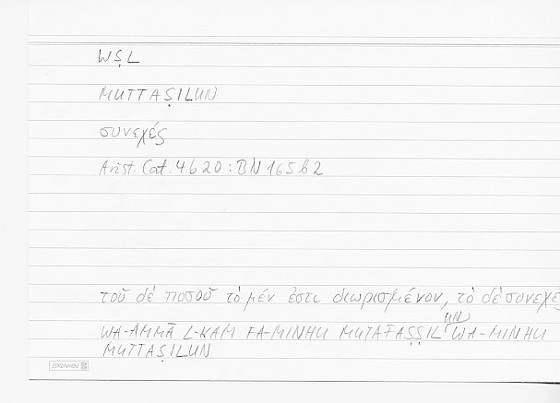 WṢL
MUTTAṢILUN
συνεχές
Arist. Cat. 4b20 : BN 165b2
τοῦ δὲ ποσοῦ τὸ μέν ἐστι διωρισμένον, τὸ δὲ συνεχές
WA-AMMĀ L-KAM FA-MINHU MUTAFAṢṢILUN WA-MINHU
MUTTAṢILUN